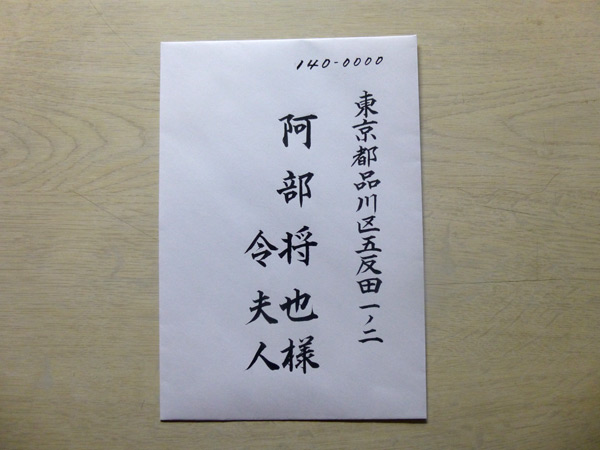 140-0000
東京都品川区五反田一ノ二
阿部将也様
令夫人